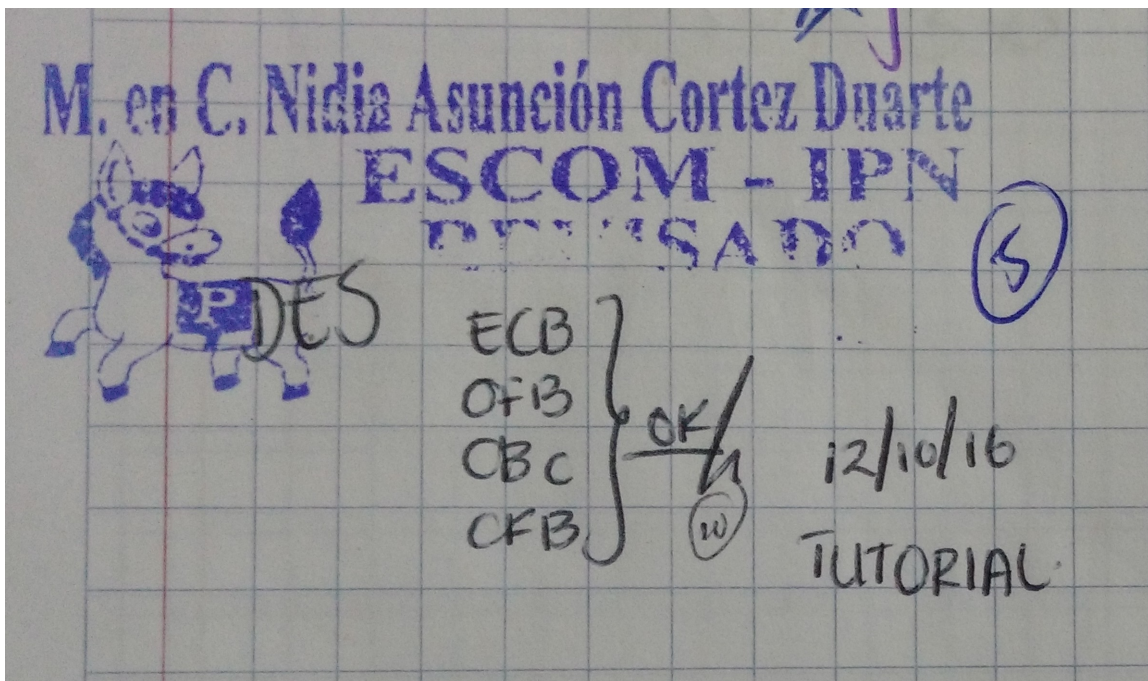 M. en C. Nidia Asunción Cortez Duarte
ESCOM - IPN
REVISADO
P
DES
ECB
OFB
CBC
CFB
OK
12/10/16
TUTORIAL